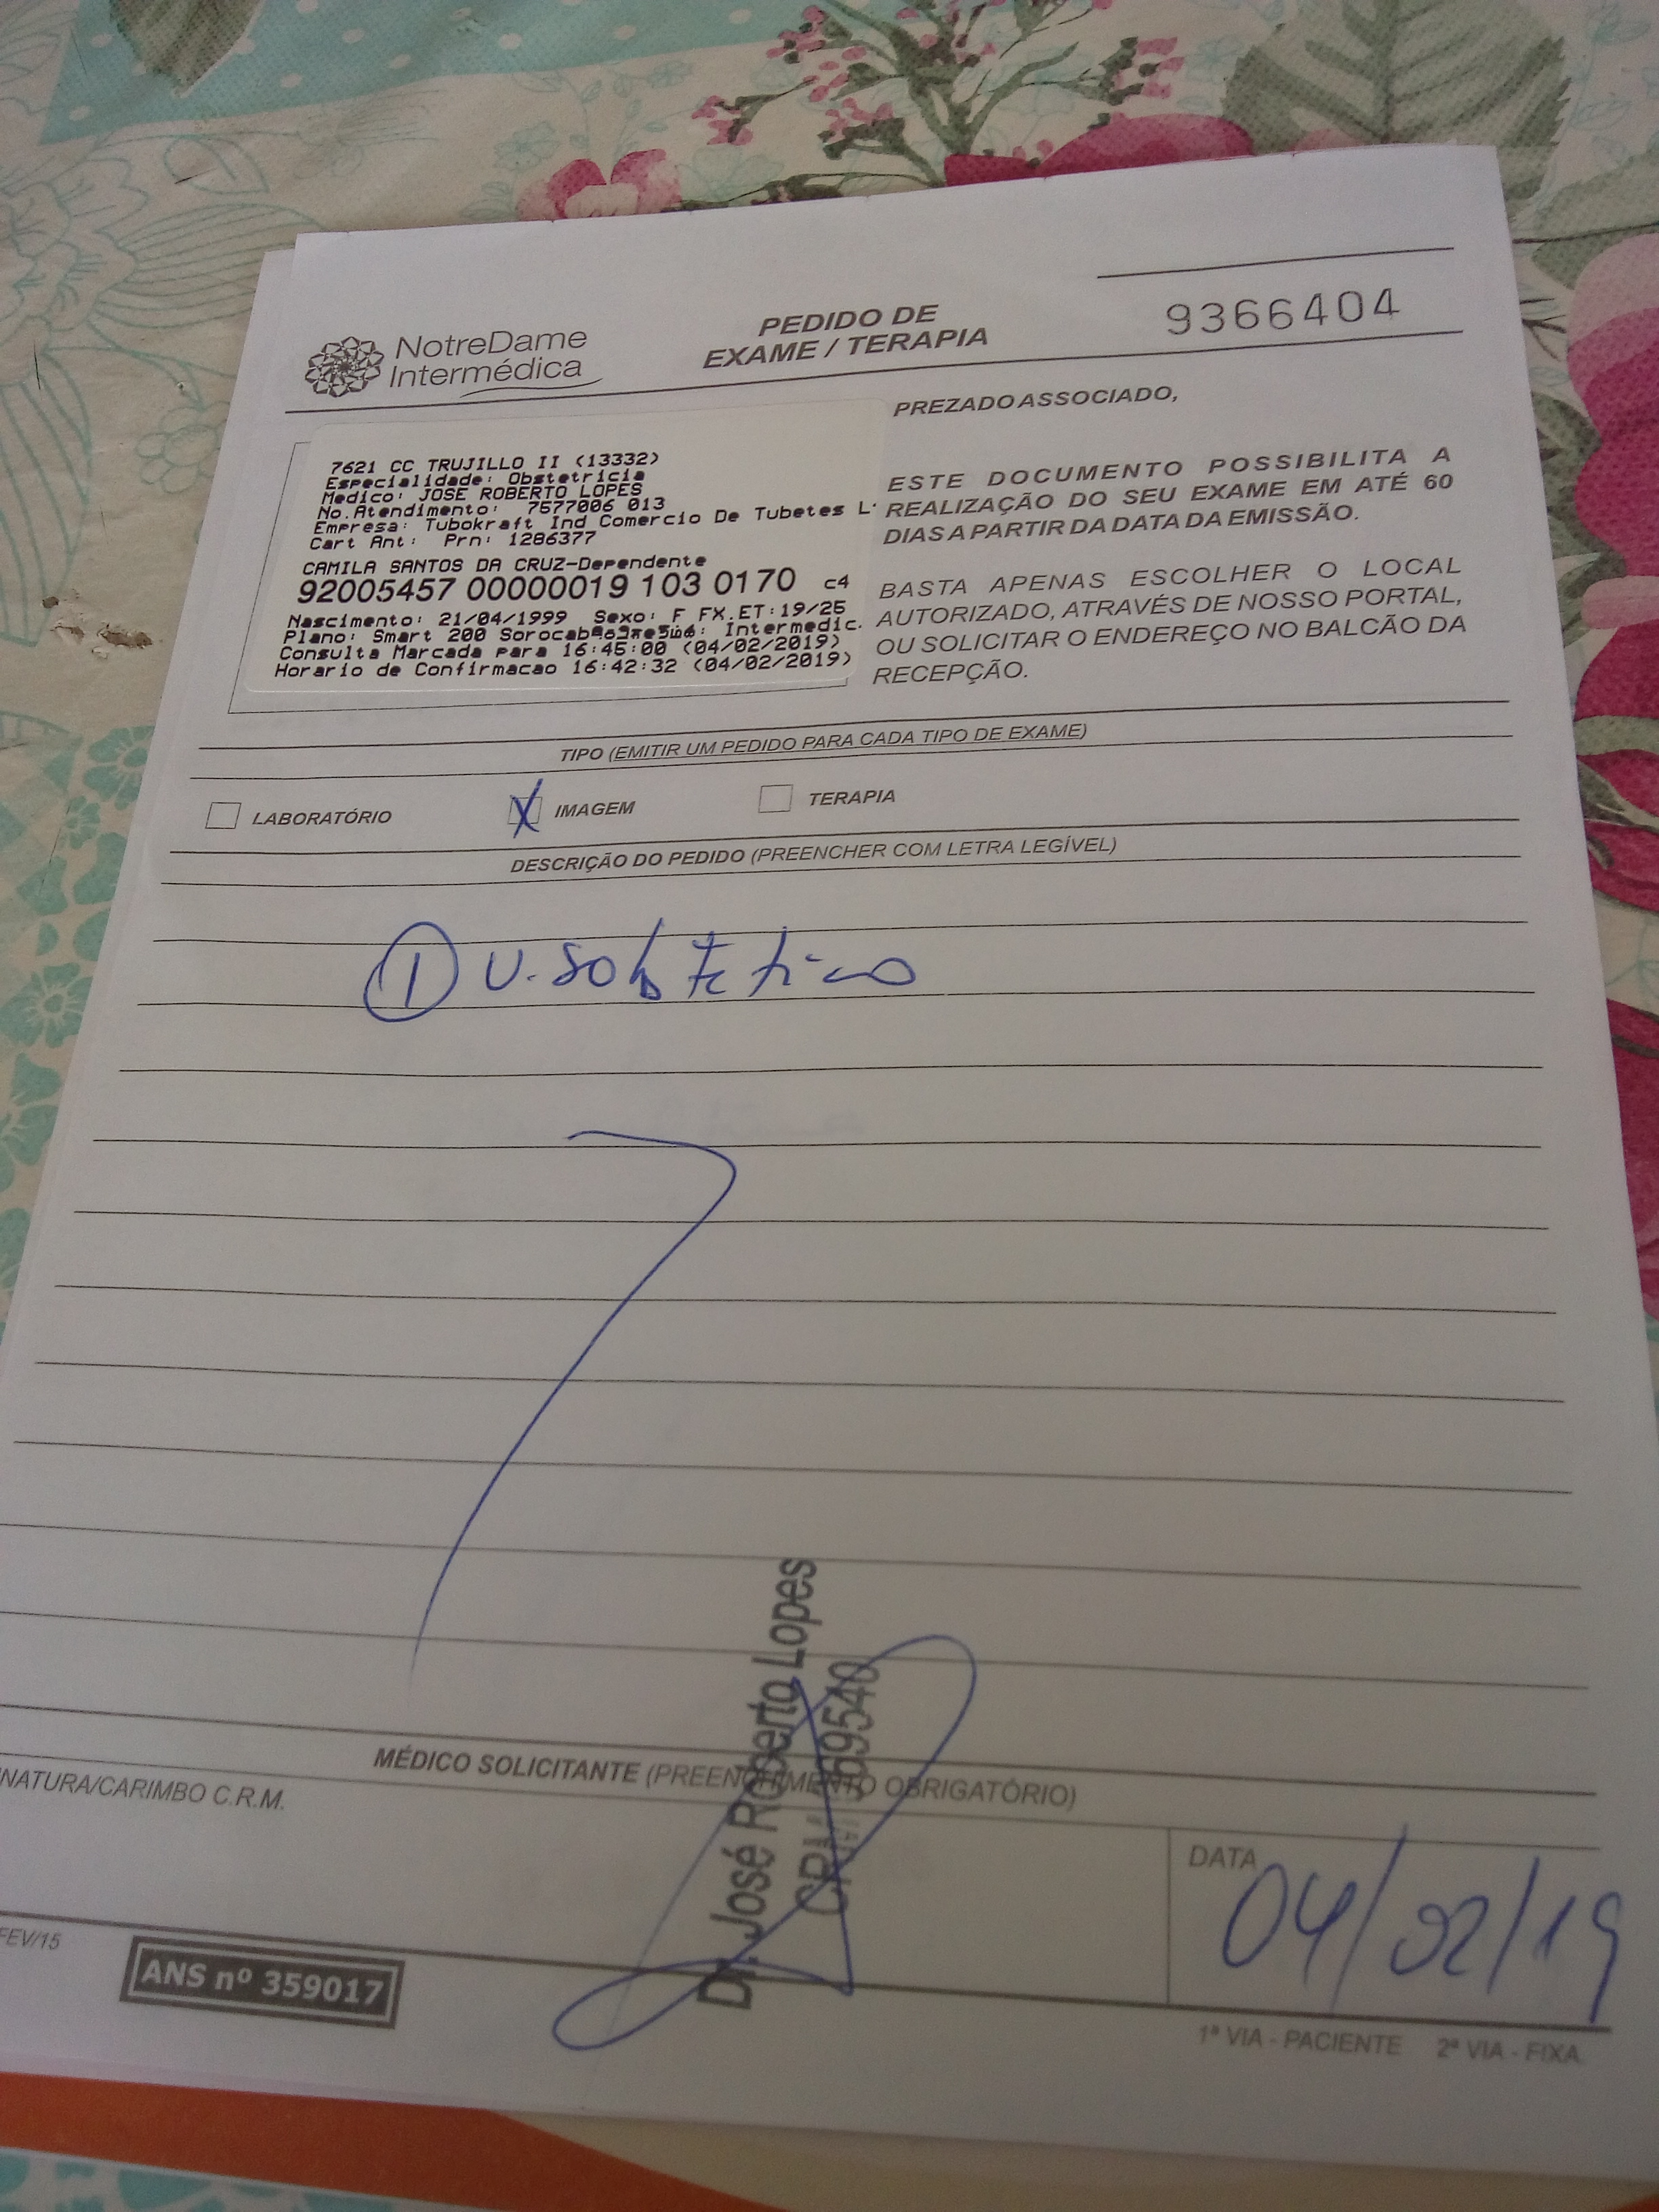 NotreDame
Intermédica
PEDIDO DE
EXAME / TERAPIA
9366404
7621 CC TRUJILLO II (13332)
Especialidade: Obstetricia
Medico: JOSE ROBERTO LOPES
No.Atendimento: 7577006 013
Empresa: Tubokraft Ind Comercio De Tubetes L
Cart Ant: Prn: 1286377
CAMILA SANTOS DA CRUZ-Dependente
92005457 00000019 103 0170 c4
Nascimento: 21/04/1999 Sexo: F FX.ET:19/25
Plano: Smart 200 Intermedic.
Consulta Marcada para 16:45:00 (04/02/2019)
Horario de Confirmacao 16:42:32 (04/02/2019)
PREZADO ASSOCIADO,
ESTE DOCUMENTO POSSIBILITA A
REALIZAÇÃO DO SEU EXAME EM ATÉ 60
DIAS A PARTIR DA DATA DA EMISSÃO.
BASTA APENAS ESCOLHER O LOCAL
AUTORIZADO, ATRAVÉS DE NOSSO PORTAL,
OU SOLICITAR O ENDEREÇO NO BALCÃO DA
RECEPÇÃO.
TIPO (EMITIR UM PEDIDO PARA CADA TIPO DE EXAME)
LABORATÓRIO X IMAGEM TERAPIA
DESCRIÇÃO DO PEDIDO (PREENCHER COM LETRA LEGÍVEL)
1 U.S obstetrico
Dr. José Roberto Lopes
CRM 69540
MÉDICO SOLICITANTE (PREENCHIMENTO OBRIGATÓRIO)
NATURA/CARIMBO C.R.M.
DATA
04/02/19
FEV/15
ANS nº 359017
1ª VIA - PACIENTE 2ª VIA - FIXA